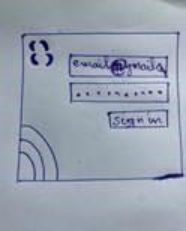 email@gmail
............
sign in